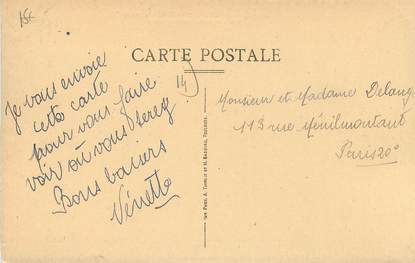 15€
CARTE POSTALE
14)
Je vous envoie
cette carte
pour vous faire
voir où vous serez
Bons baisers
Vénette
Monsieur et Madame Delang
113 rue Ménilmontant
Paris 20°